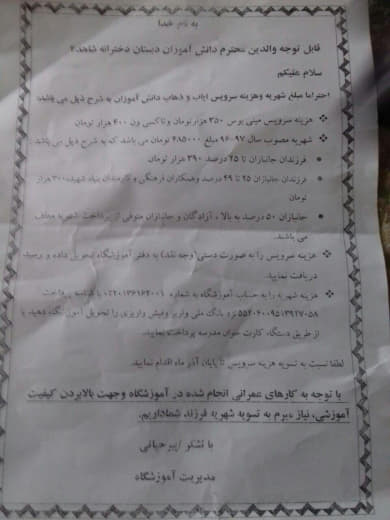 به نام خدا
قابل توجه والدین محترم دانش آموزان دبستان دخترانه شاهد۲
سلام علیکم
احتراما مبلغ شهریه وهزینه سرویس ایاب و ذهاب دانش آموزان به شرح ذیل می باشد:
❖ هزینه سرویس مینی بوس ۳۵۰ هزارتومان وتاکسی ون ۴۰۰ هزار تومان
❖ شهریه مصوب سال ۹۷-۹۶ مبلغ ۴۸۵۰۰۰ تومان می باشد که به شرح ذیل می باشد:
● فرزندان جانبازان تا ۲۵ درصد ۳۹۰ هزار تومان
● فرزندان جانبازان ۲۵ تا ۴۹ درصد وهمکاران فرهنگی و کارمندان بنیاد شهید۳۰۰ هزار
تومان
● جانبازان ۵۰ درصد به بالا ، آزادگان و جانبازان متوفی از پرداخت شهریه معاف
می باشند.
❖ هزینه سرویس را به صورت دستی(وجه نقد) به دفتر آموزشگاه تحویل داده و رسید
دریافت نمایید.
❖ هزینه شهریه را به حساب آموزشگاه به شماره با شناسه پرداخت
نزد بانک ملی واریز وفیش واریزی را تحویل آموزشگاه دهید یا
از طریق دستگاه کارت خوان مدرسه پرداخت نمایید.
لطفا نسبت به تسویه هزینه سرویس تا پایان آذر ماه اقدام نمایید.
با توجه به کارهای عمرانی انجام شده در آموزشگاه وجهت بالابردن کیفیت
آموزشی، نیاز مبرم به تسویه شهریه فرزند شماداریم.
با تشکر
مدیریت آموزشگاه